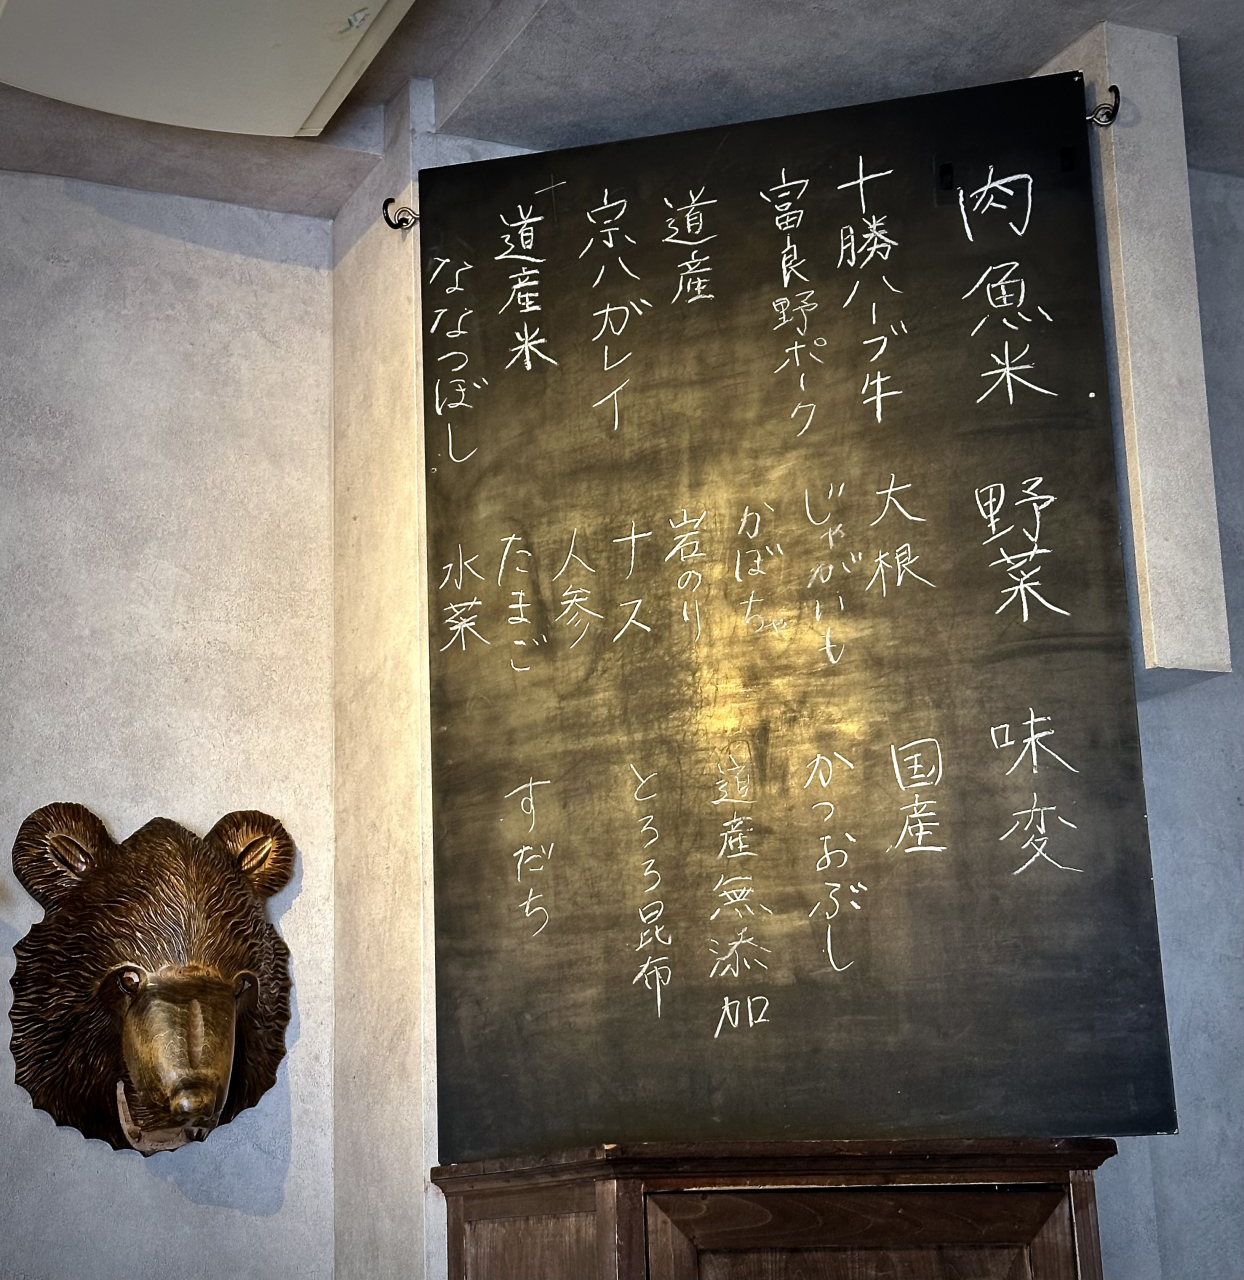 肉魚米
十勝ハーブ牛
富良野ポーク
道産
宗ハガレイ
道産米
ななつぼし
野菜
大根
じゃがいも
かぼちゃ
岩のり
ナス
人参
たまご
水菜
味変
国産
かつおぶし
道産無添加
とろろ昆布
すだち